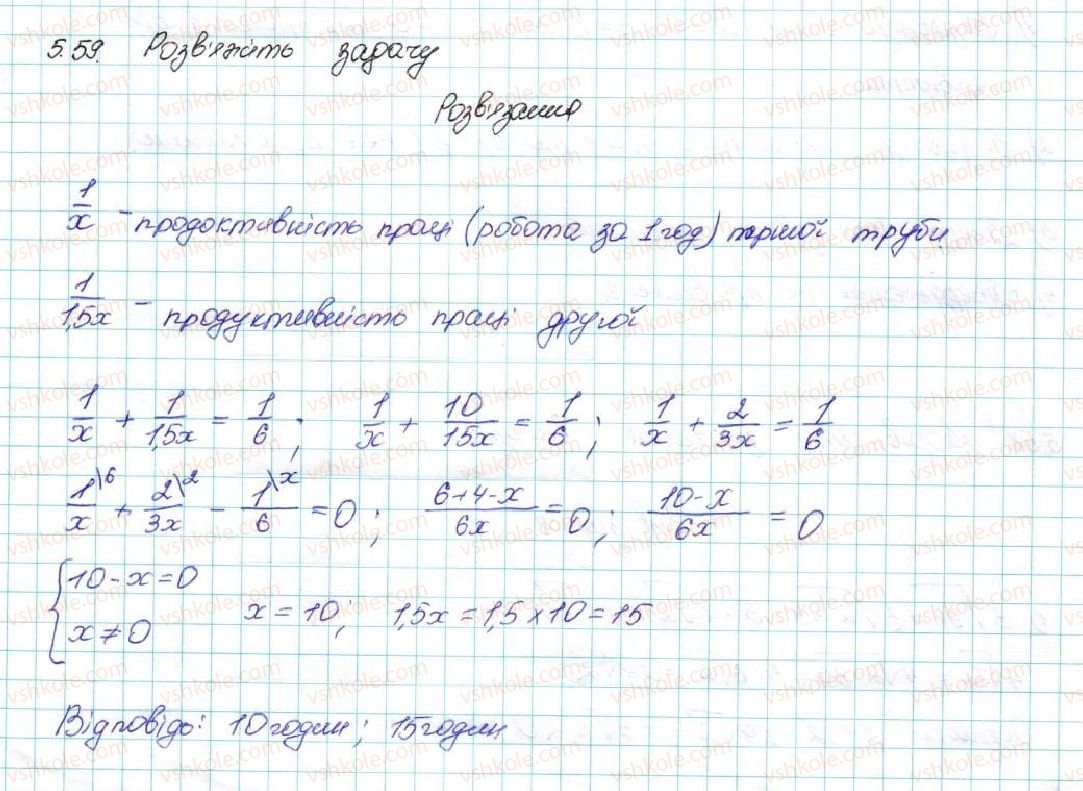 5.59. Розв'яжіть задачу
Розв'язання
1/x - продоктивність праці (робота за 1 год) першої труби
1/1,5x - продуктивність праці другої
1/x + 1/1,5x = 1/6 ; 1/x + 10/15x = 1/6 ; 1/x + 2/3x = 1/6
1\6/x + 2\2/3x - 1\x/6 = 0 ; 6+4-x/6x = 0 ; 10-x/6x = 0
{ 10-x=0
x≠0 x=10; 1,5x=1,5×10=15
Відповідь: 10 годин; 15 годин
vshkole.com